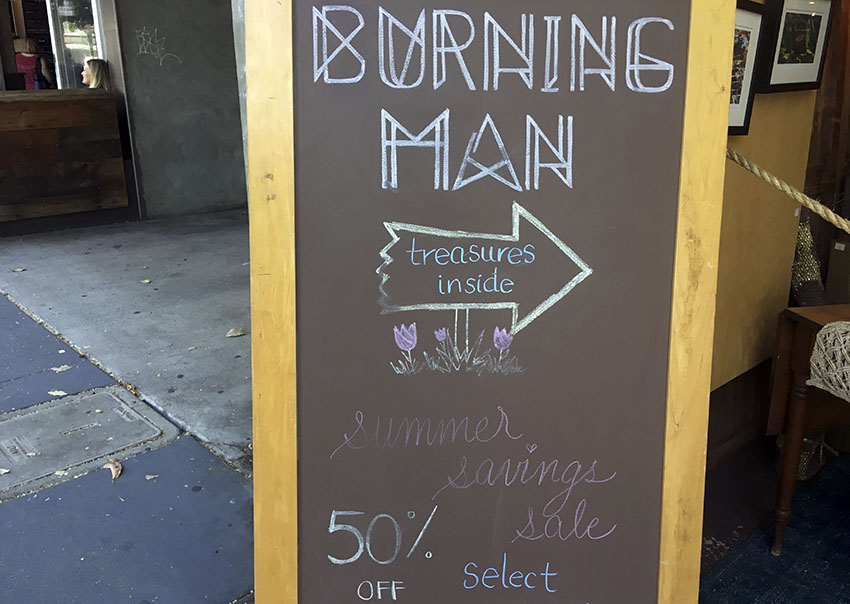 BURNING
MAN
treasures
inside
summer
savings
sale
50%
OFF
select